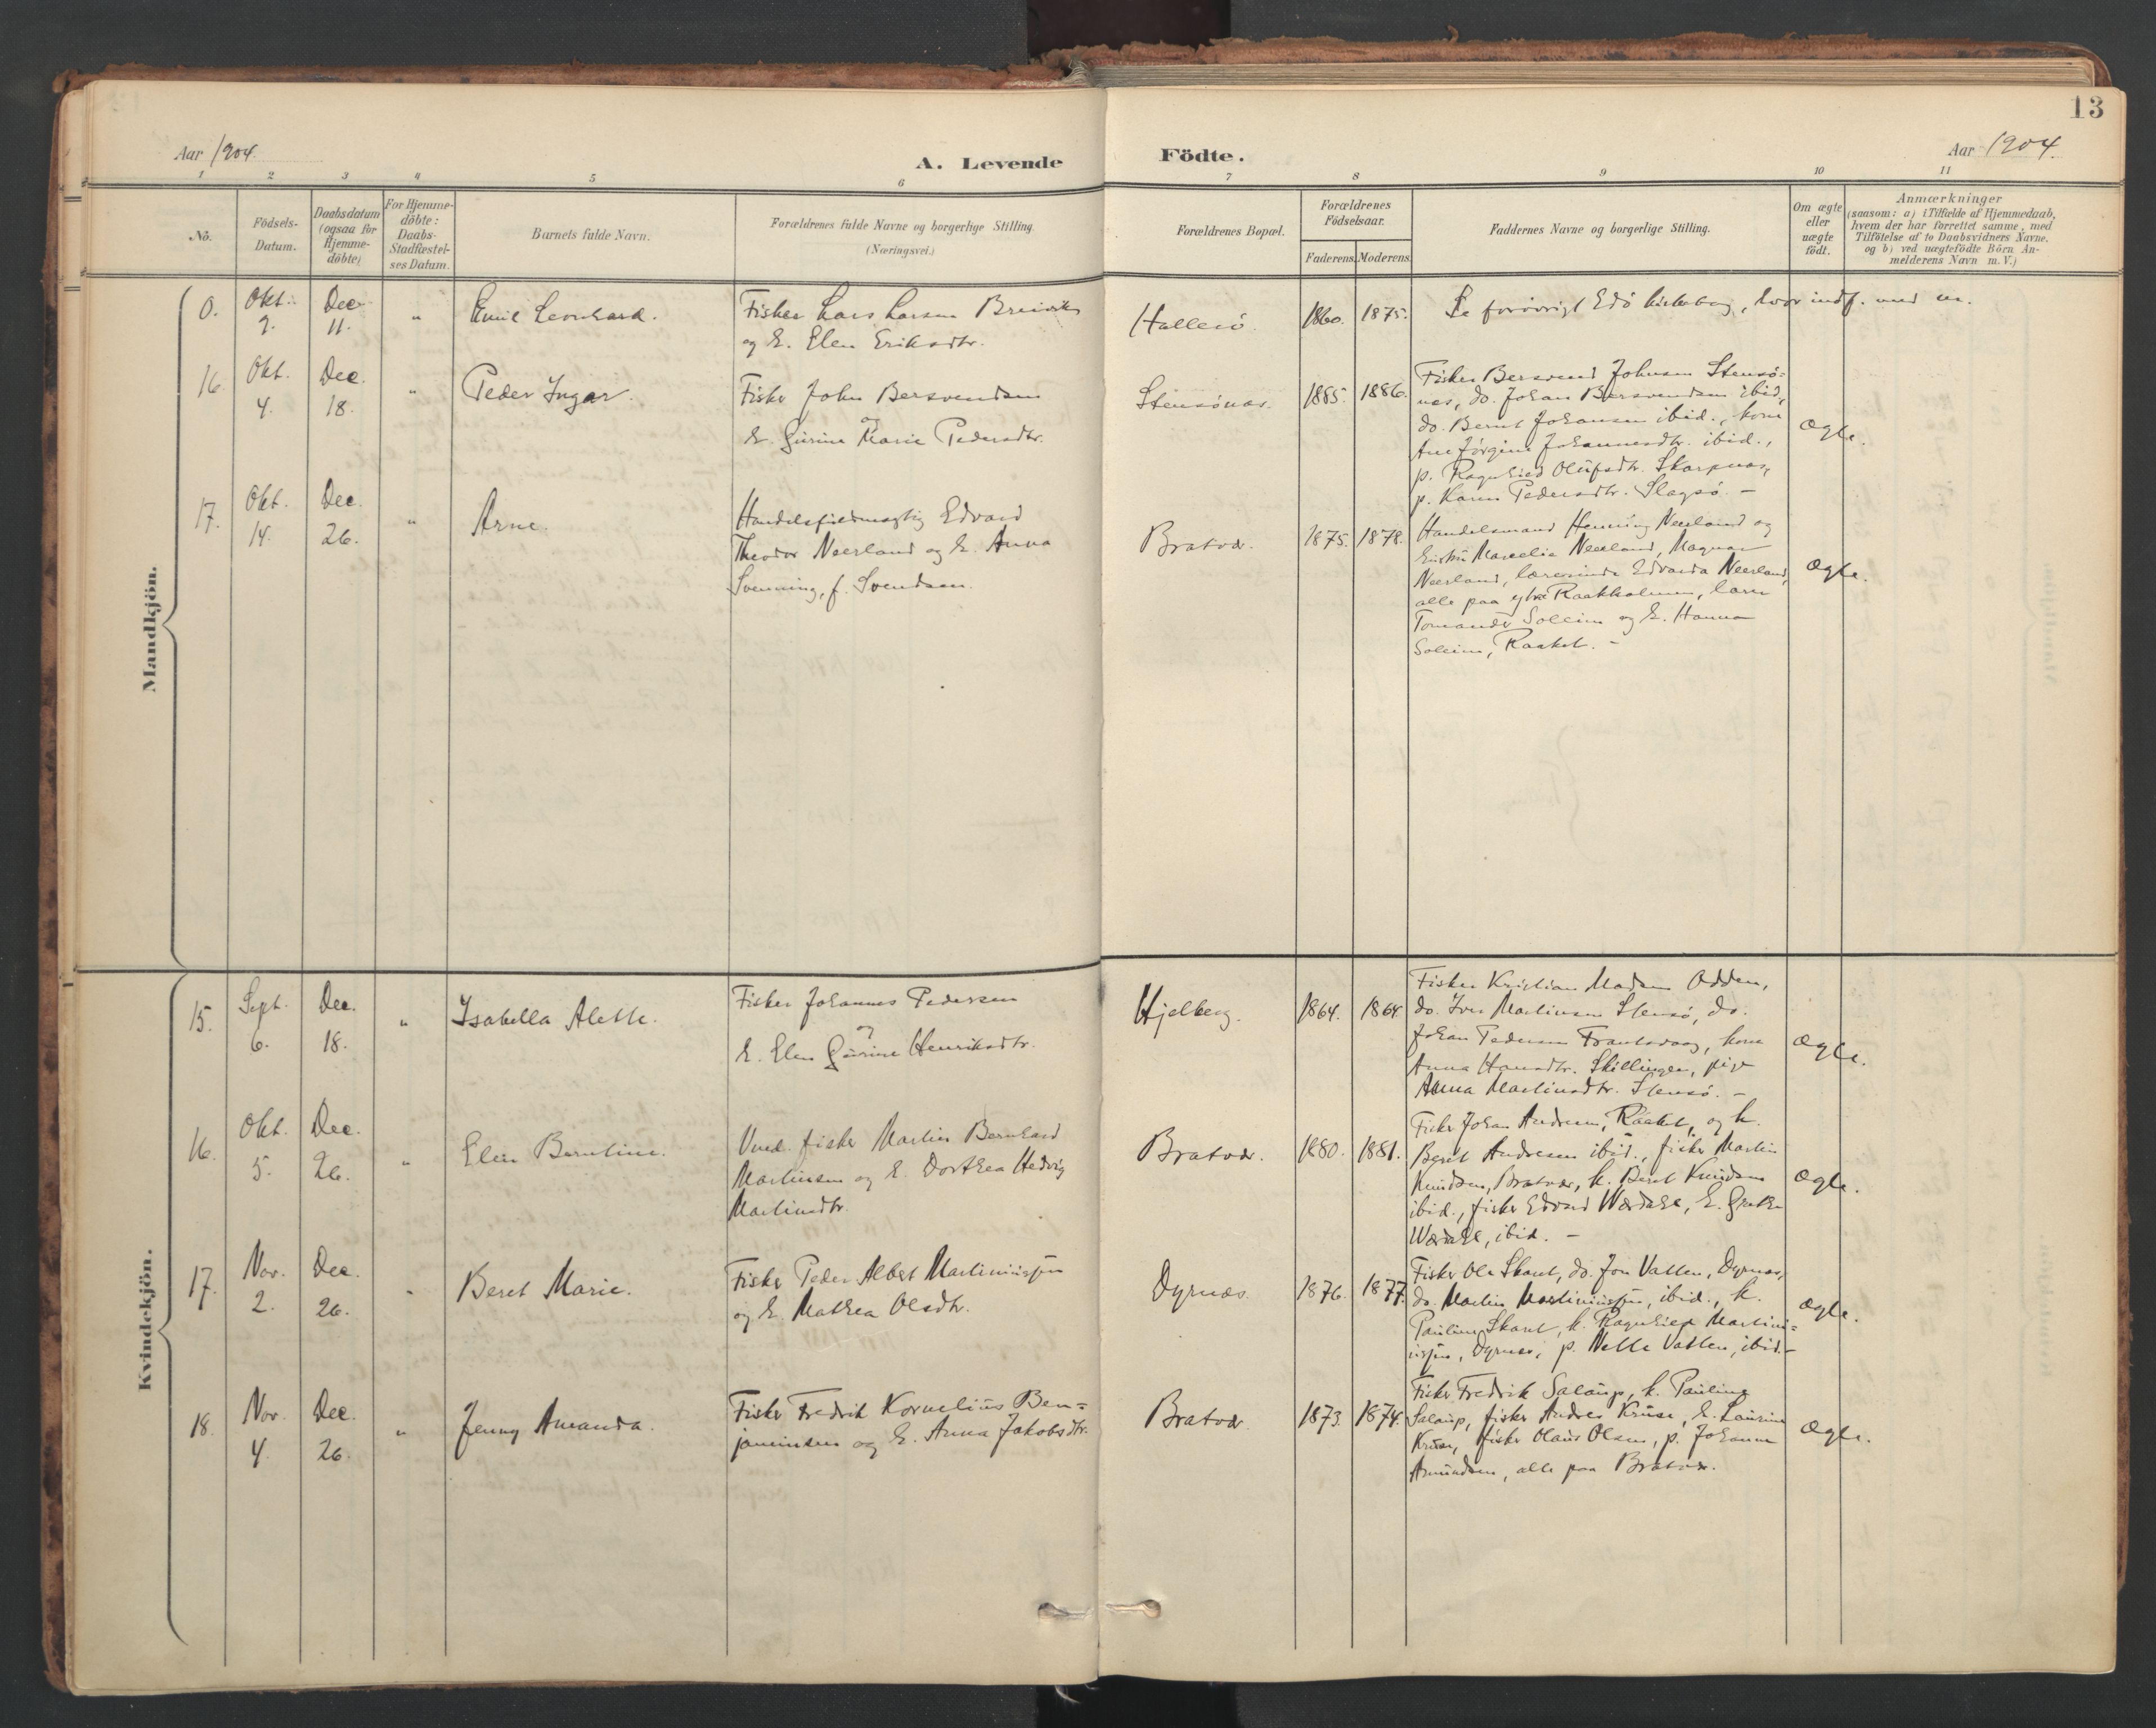 13
Aar 1904.
A. Levende Födte.
Aar 1904.
1 2 3 4 5 6 7 8 9 10 11
No.
Födsels-Datum.
Daabsdatum (ogsaa for Hjemme-döbte)
For Hjemme-döbte: Daabs-Stadfæstel-ses Datum.
Barnets fulde Navn.
Forældrenes fulde Navne og borgerlige Stilling.
(Næringsvei.)
Forældrenes Bopæl.
Forældrenes Födselsaar.
Faderens. Moderens.
Faddernes Navne og borgerlige Stilling.
Om ægte eller uægte födt.
Anmærkninger
(saasom: a) i Tilfælde af Hjemmedaab,
hvem der har forrettet samme, med
Tilföielse af to Daabsvidners Navne,
og b) ved uægtefödte Börn An-
melderens Navn m. V.)
Mandkjön.
0. Okt. 2. Dec. 11. " Emil Leonhard.
Fisker Lars Larsen
og h. Elen Eriksdtr.
1860. 1875.
Se forövrigt Edö kirkebog, hvor indf. med nr.
16. Okt. 4. Dec. 18. " Peder Ingar.
Fisker John Bersvendsen
og
h. Gurine Marie Pedersdtr.
Stensönæs. 1885. 1886.
Fisker Bersvend Johnsen Stensö-
næs, do. Johan Bersvendsen ibid.,
do. Bernt Johansen ibid., kone
Ane Jörgine Johannesdtr. ibid.,
p. Ragnhild Olufsdtr. Skarpnæs,
p. Karen Pedersdtr. Slagsö. –
Ægte.
17. Okt. 14. Dec. 26. " Arne.
Handelsfuldmægtig Edvard
Theodor Neerland og h. Anna
Svenning, f. Svendsen.
Bratvær. 1875. 1878.
Handelsmand Henning Neerland og
Marcelie Neerland, Magnar
Neerland, lærerinde Edvarda Neerland,
alle paa ytre Raakholmen, lærer
Tomander Soleim og h. Hanna
Soleim, Raaket. –
Ægte.
Kvindekjön.
15. Sept. 6. Dec. 18. " Isabella Alette.
Fisker Johannes Pedersen
og
h. Elen Gurine Henriksdtr.
Hjelberg. 1864. 1864.
Fisker Kristian Madsen Odden,
do. Iver Martinsen Stensö, do.
Johan Pedersen kone
Anna Hansdtr. Skillingen, pige
Anna Martinsdtr. Stensö. –
Ægte.
16. Okt. 5. Dec. 26. " Elen Berntine.
fisker Martin Bernhard
Martinsen og h. Dorthea Hedvig
Martinsdtr.
Bratvær. 1880. 1881.
Fisker Johan Andresen, Raaket, og k.
Beret Andresen ibid., fisker Martin
Knudsen, Bratvær, k. Beret Knudsen
ibid., fisker Edvard Werdahl, h. Grethe
Werdahl, ibid. –
Ægte.
17. Nov. 2. Dec. 26. " Beret Marie.
Fisker Peder Albert Martinussen
og h. Mathea Olsdtr.
Dyrnæs. 1876. 1877.
Fisker Ole Skaret, do. Jon Vatten, Dyrnæs,
do. Martin Martinussen, ibid., k.
Pauline Skaret, k. Ragnhild Martin-
ussen, Dyrnæs, p. Nelle Vatten, ibid. –
Ægte.
18. Nov. 4. Dec. 26. " Jenny Amanda.
Fisker Fredrik Kornelius Ben-
jaminsen og h. Anna Jakobsdtr.
Bratvær. 1873. 1874.
Fisker Fredrik Salaup, k. Pauline
Salaup, fisker Andreas Kruse, h. Laurine
Kruse, fisker Olaus Olsen, p. Johanne
Amundsen, alle paa Bratvær.
Ægte.